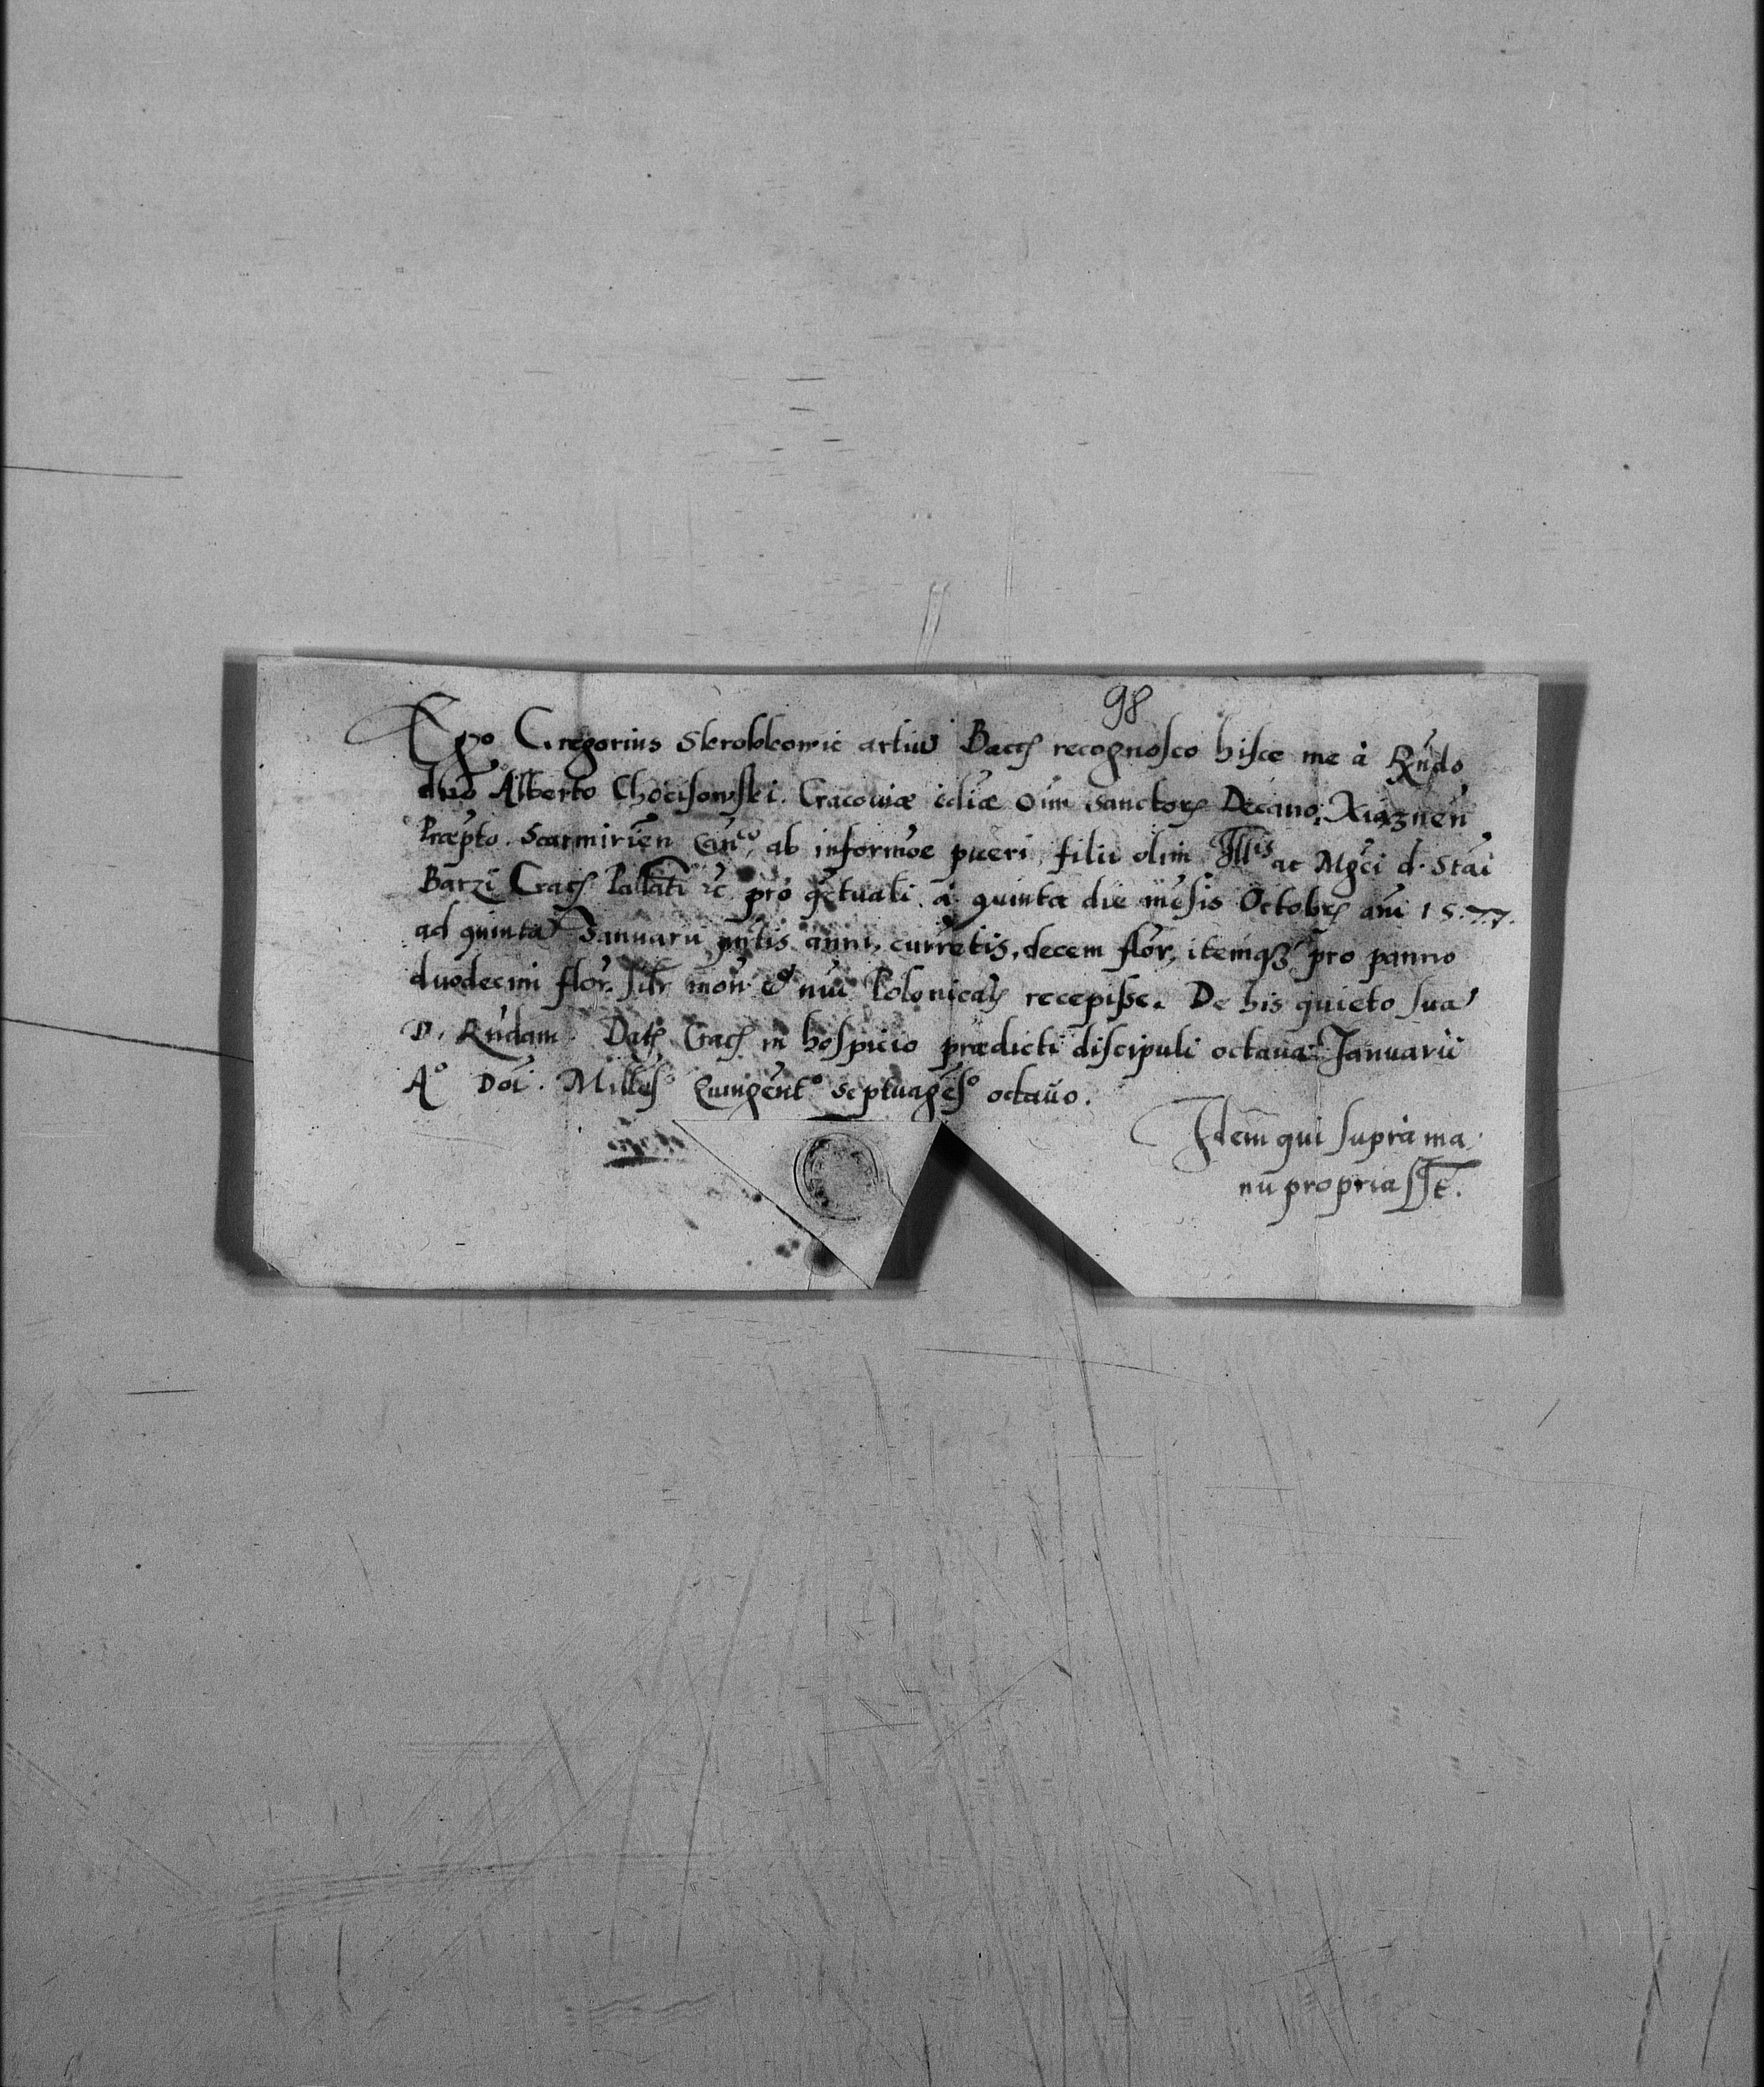 98
Ego Gregorius Skrobkowic artiū Baccꝭ recognosco hisce me à Rndo
dno Alberto Chocisowski. Cracouiæ ecliæ Oīm Sanctorꝭ Decano, Xiąznen̄
Præpto. Scarmirien̄ Cancō, ab informōe pueri, filii olim Illis ac Mgci d. Stāi
Barzi Cracꝭ Pallati ꝛc pro qrtuali, a quinta die mēsis Octobrꝭ āni 1577.
ad quintā Januarii pntis anni, currētis, decem flor, itemqꝫ pro panno
duodecim flor. sitr mon & nūi Polonicalꝭ recepisse. De his quieto suā
D. Rndam. Datꝭ Cracꝭ in hospicio prædicti discipuli octaua Januarii
A° Doī. Milles° Quingent° septuages° octāuo.
Idem qui supra ma
nu propria sst.